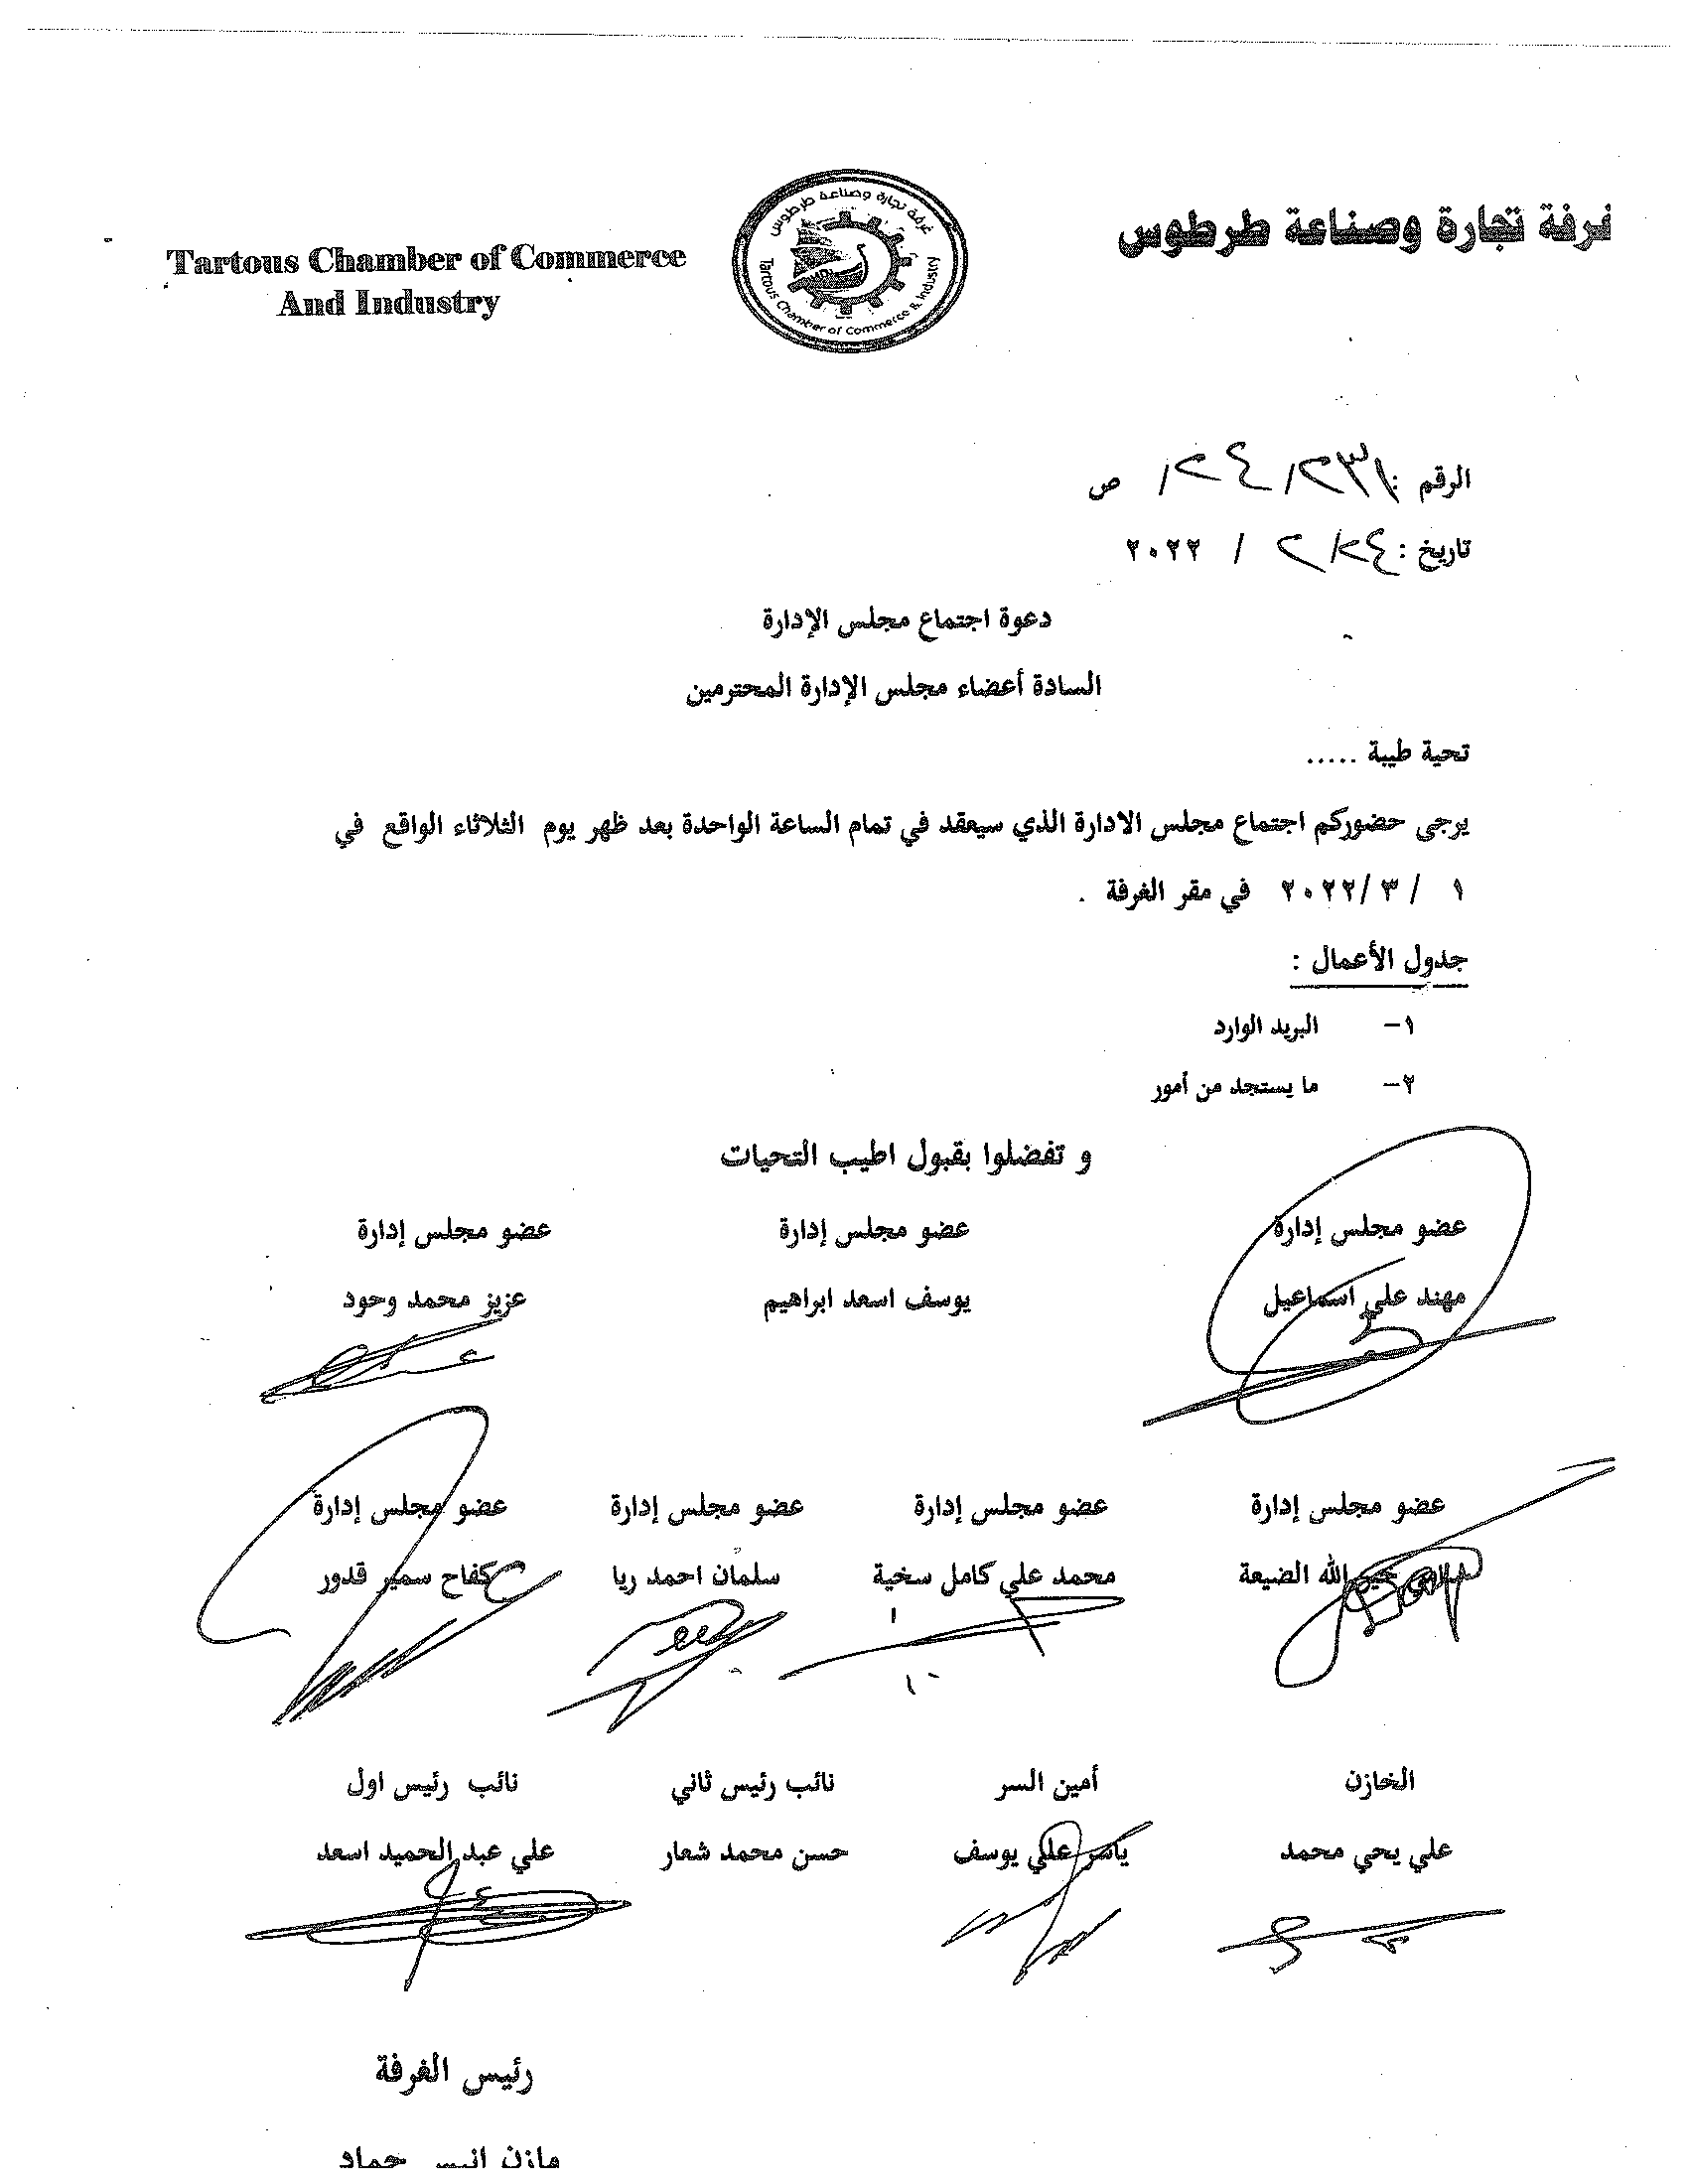 Tartous Chamber of Commerce
And Industry
غرفة تجارة وصناعة طرطوس
Tartous Chamber of Commerce & Industry
غرفة تجارة وصناعة طرطوس
الرقم : ص
تاريخ : ٢٤/ ٢ / ٢٠٢٢
دعوة اجتماع مجلس الإدارة
السادة أعضاء مجلس الإدارة المحترمين
تحية طيبة .....
يرجى حضوركم اجتماع مجلس الادارة الذي سيعقد في تمام الساعة الواحدة بعد ظهر يوم الثلاثاء الواقع في
١ / ٣ /٢٠٢٢ في مقر الغرفة .
جدول الأعمال :
١- البريد الوارد
٢- ما يستجد من أمور
و تفضلوا بقبول اطيب التحيات
عضو مجلس إدارة عضو مجلس إدارة عضو مجلس إدارة
مهند علي اسماعيل يوسف اسعد ابراهيم عزيز محمد وحود
عضو مجلس إدارة عضو مجلس إدارة عضو مجلس إدارة عضو مجلس إدارة
الله الضيعة محمد علي كامل سخية سلمان احمد ريا كفاح سمير قدور
الخازن أمين السر نائب رئيس ثاني نائب رئيس اول
علي يحي محمد ياسر علي يوسف حسن محمد شعار علي عبد الحميد اسعد
رئيس الغرفة
مازن انيس حماد